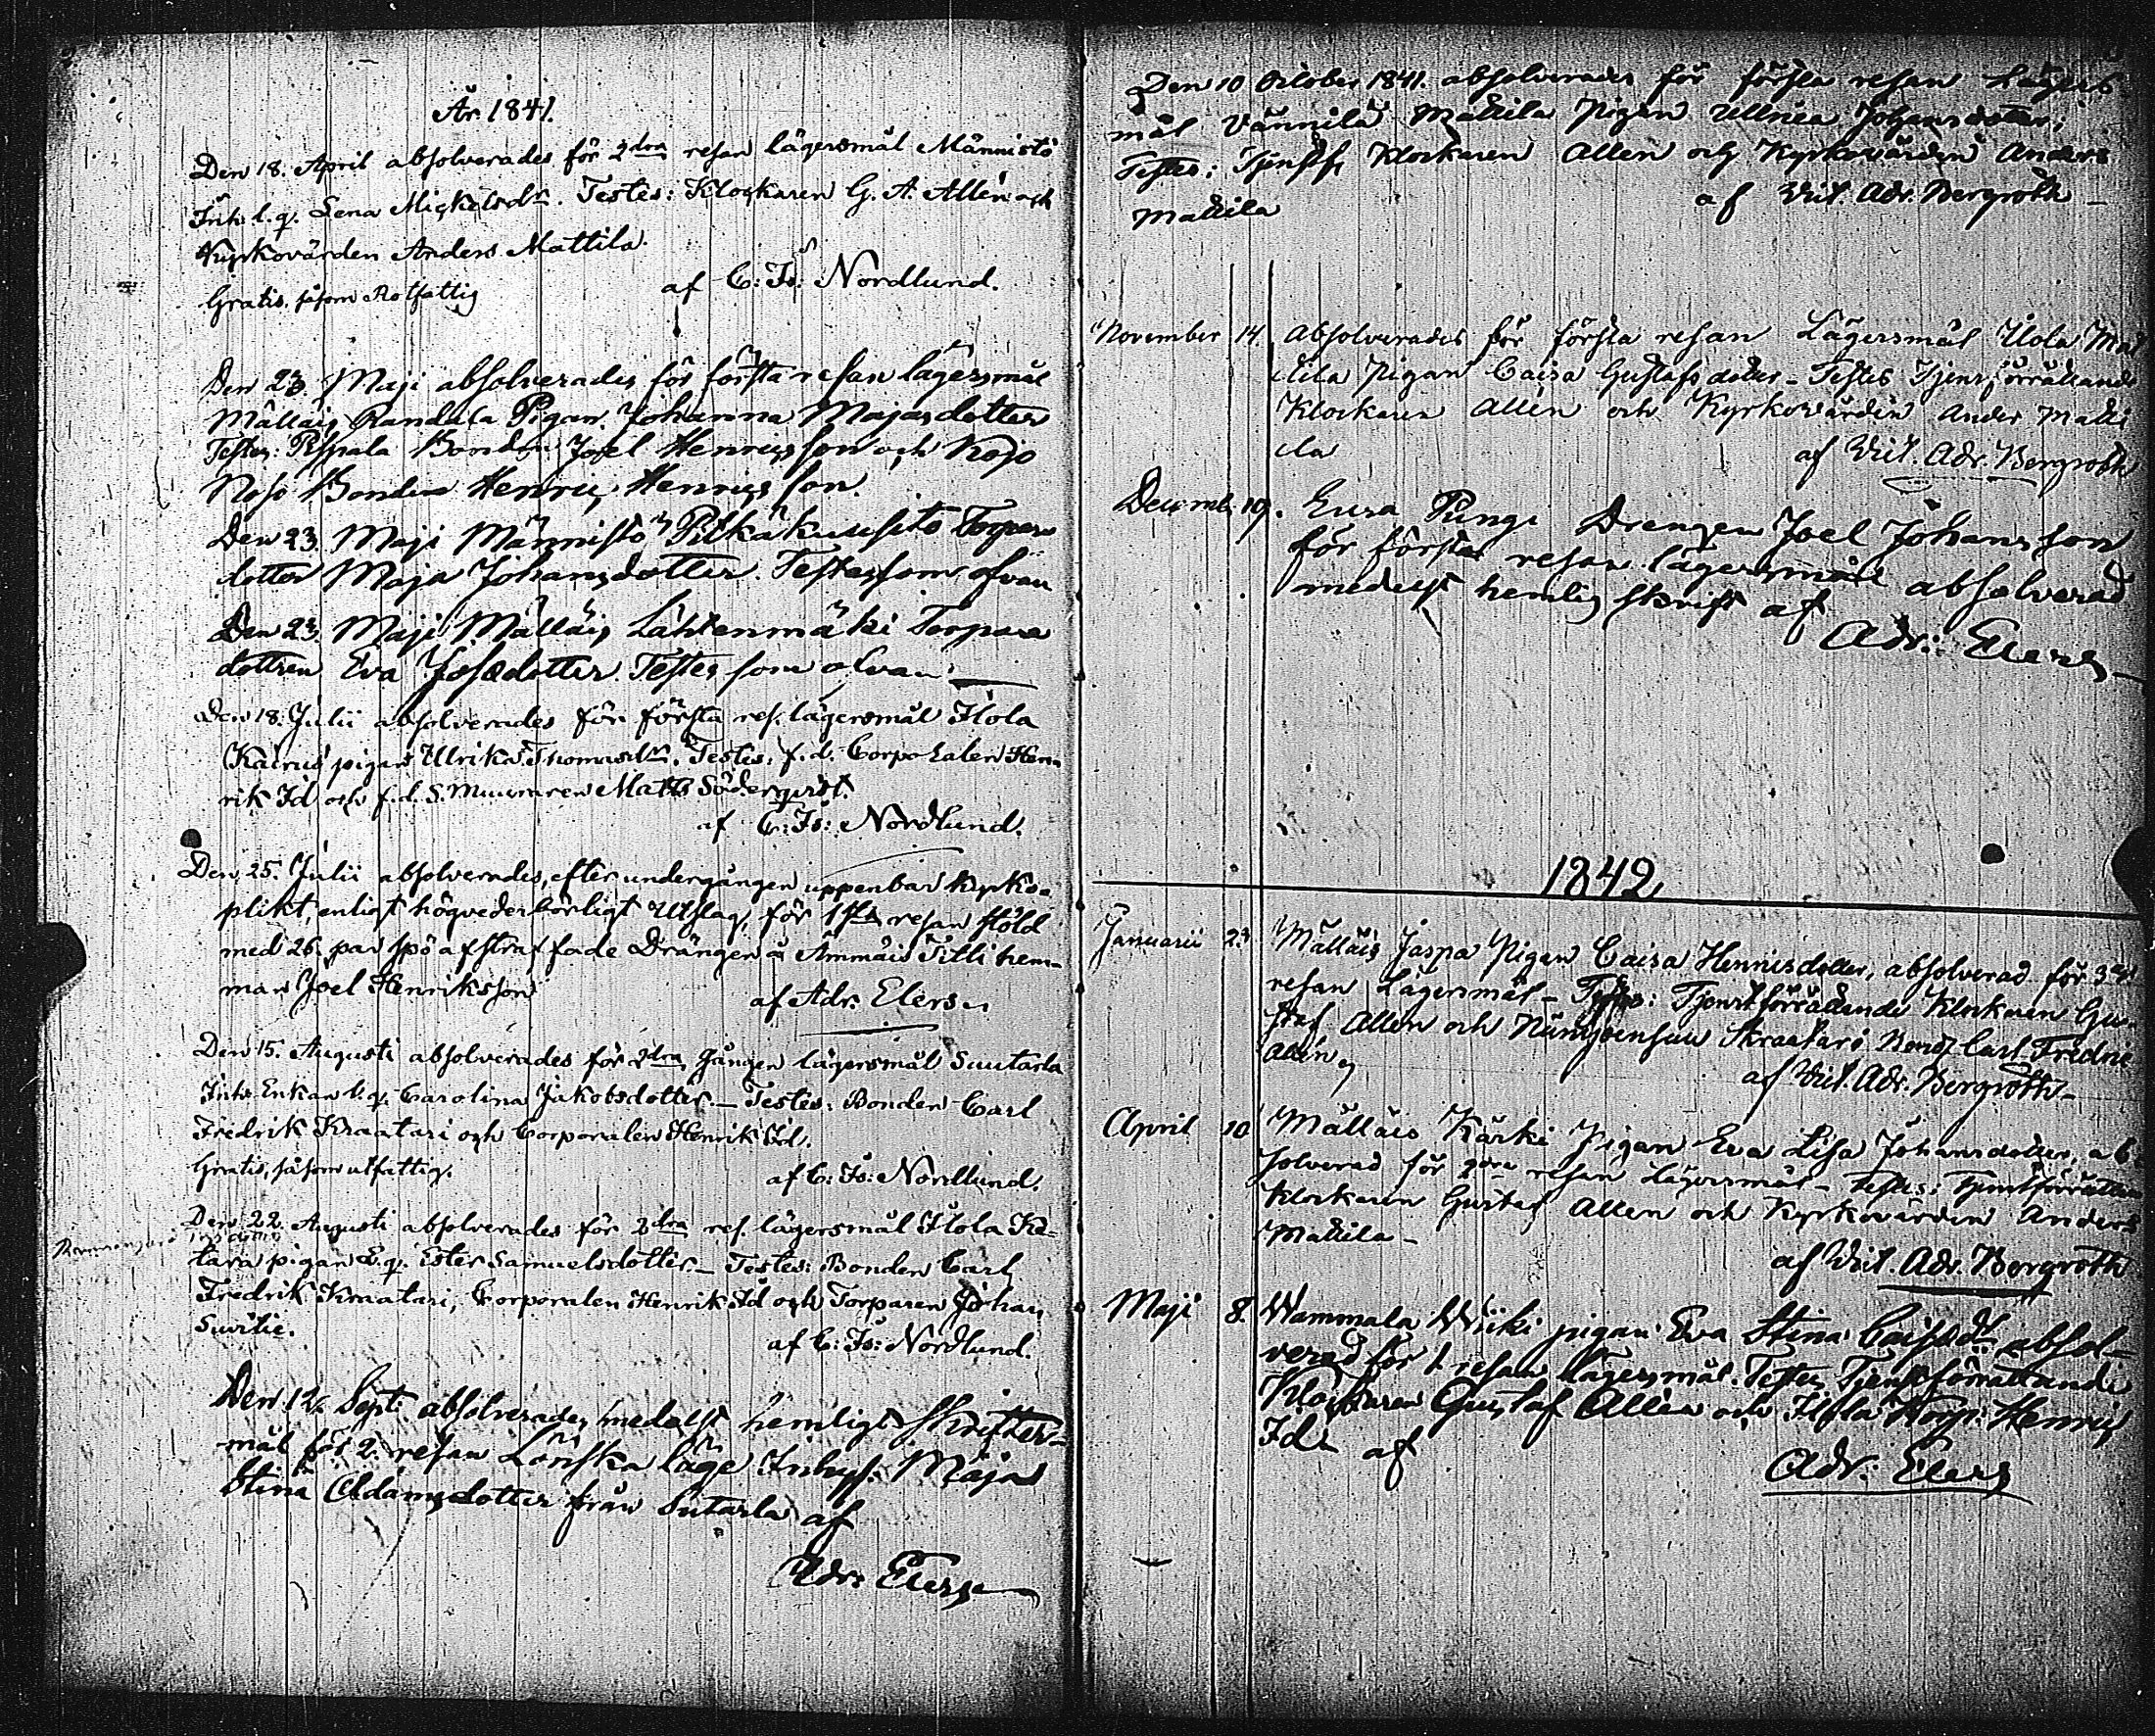 År 1841.
Den 18. April absolverades för 2dra resan lägersmål Männistö
Inh. l. q. Lena Mickelsdr. Testes: Klockaren G. A. Allén och
Kyrkovärden Anders Mattila.
Gratis, såsom Rotfattig
af C: Fr: Nordlund.
Den 23. Maji absolverades för första resan lägersmål
Mälläis Randala Pigan Johanna Majasdotter
Testes: Pispala Bonden Joel Henricsson och Kojo
Bonden Henric Henricsson.
Den 23. Maji Männistö Torpare
dotter Maja Johansdotter. Testes som ofvan
Den 23. Maji Mälläis Lähtenmäki Torpare
dottren Eva Josedotter. Testes som ofvan
Den 18. Julii absolverades för första res. lägersmål Ilola
Kairus pigan Ulrika Thomasdr. Testes: f. d. Corporalen Hen-
rik Id och f. d. S. Muuraren Matts Söderqvist.
af C: Fr: Nordlund.
Den 25. Julii absolverades, efter undergången uppenbar kyrko-
plikt, enligt högvederbörligt Utslag, för 1sta resan stöld
med 26. par spö afstraffade Drängen å Ämmäis Tilli hem-
man Joel Henriksson
af Adr. Elers
Den 15. Augusti absolverades för 2dra gången lägersmål Suutarla
Inh. Enkan l. q. Carolina Jakobsdotter. — Testes: Bonden Carl
Fredrik Kraatari och Corporalen Henrik Id.
Gratis, såsom utfattig.
af C: Fr: Nordlund.
Den 22. Augusti absolverades för 2dra res. lägersmål Ilola Ke-
tara pigan l. q. Ester Samuelsdotter. — Testes: Bonden Carl
Fredrik Kraatari, Corporalen Henrik Id och Torparen Johan
af C: Fr: Nordlund.
Den 12. Sept. absolverades medelst hemligt skrifter-
mål för 2. resan Lönska läge Inhys. Maja
Stina Adamsdotter från Sutarla af
Adr: Elers
Den 10 October 1841. absolverades för första resan Lägers
mål Vännilä Mattila Pigan Ulrica Johansdotter;
Testes: Klockaren Allén och Kyrkovärden Anders
Mattila
af Vit. Adr. Bergroth —
November 14. Absolverades för första resan Lägersmål Ilola Mat
tila Pigan Caisa Gustafsdotter — Testes Tjenstförrättande
Klockaren Allén och Kyrkovärden Anders Matti
la
af Vit. Adr. Bergroth
Decemb. 19. Eura Pungi Drengen Joel Johansson
för första resan lägersmål absolverad
medelst hemlig skrift af
Adr: Elers
1842
Januarii 23 Mälläis Jaspa Pigan Caisa Henricsdotter, absolverad för 3dje
resan Lägersmål — Testes: Tjenstförrättande Klockaren Gu-
staf Allen och Kraatari Bond. Carl Fredric
Allén
af Vit. Adr. Bergroth —
April 10 Mälläis Kärki Pigan Eva Lisa Johansdotter, ab
solverad för 2dra resan Lägersmål — Testes: Tjenstförrättan
Klockaren Gustaf Allen och Kyrkovärden Anders
Mattila —
af Vit. Adr. Bergroth
Maji 8. Wammala Wiiki pigan Eva Stina absol-
verad för 1 resan lägersmål. Testes Tjenstförrättande
Klockaren Gustaf Allén och Ilola Korp. Henric
Id af
Adr: Elers